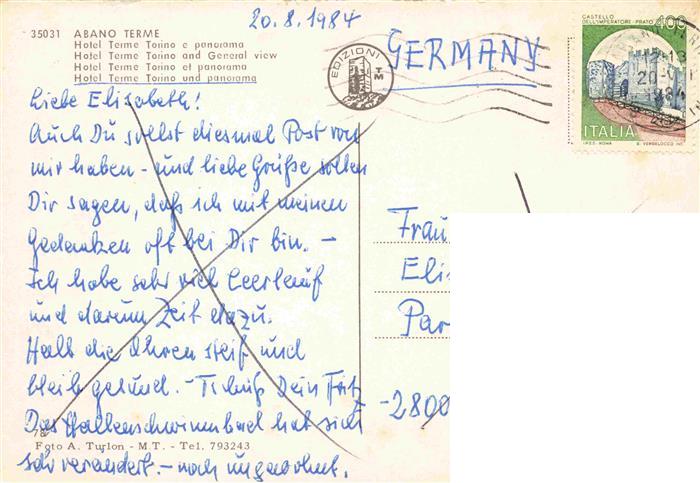 20.8.1984
35031 ABANO TERME
Hotel Terme Torino e panorama
Hotel Terme Torino and General view
Hotel Terme Torino et panorama
Hotel Terme Torino und panorama
EDIZIONI
TM
GERMANY
CASTELLO
DELL'IMPERATORE - PRATO
400
ITALIA
I.P.Z.S. - ROMA
Liebe Elisabeth!
Auch Du sollst diesmal Post von
mir haben - und liebe Grüße sollen
Dir sagen, daß ich mit meinen
Gedanken oft bei Dir bin. -
Ich habe sehr viel Leerlauf
und darum Zeit dazu.
Halt die Ohren steif und
bleib gesund. - Tschüß Dein Fritz
Das Hallenschwimmbad hat sich
sehr verändert. - noch ungewohnt.
Frau
Elis
Par
-2800
Foto A. Turlon - M.T. - Tel. 793243